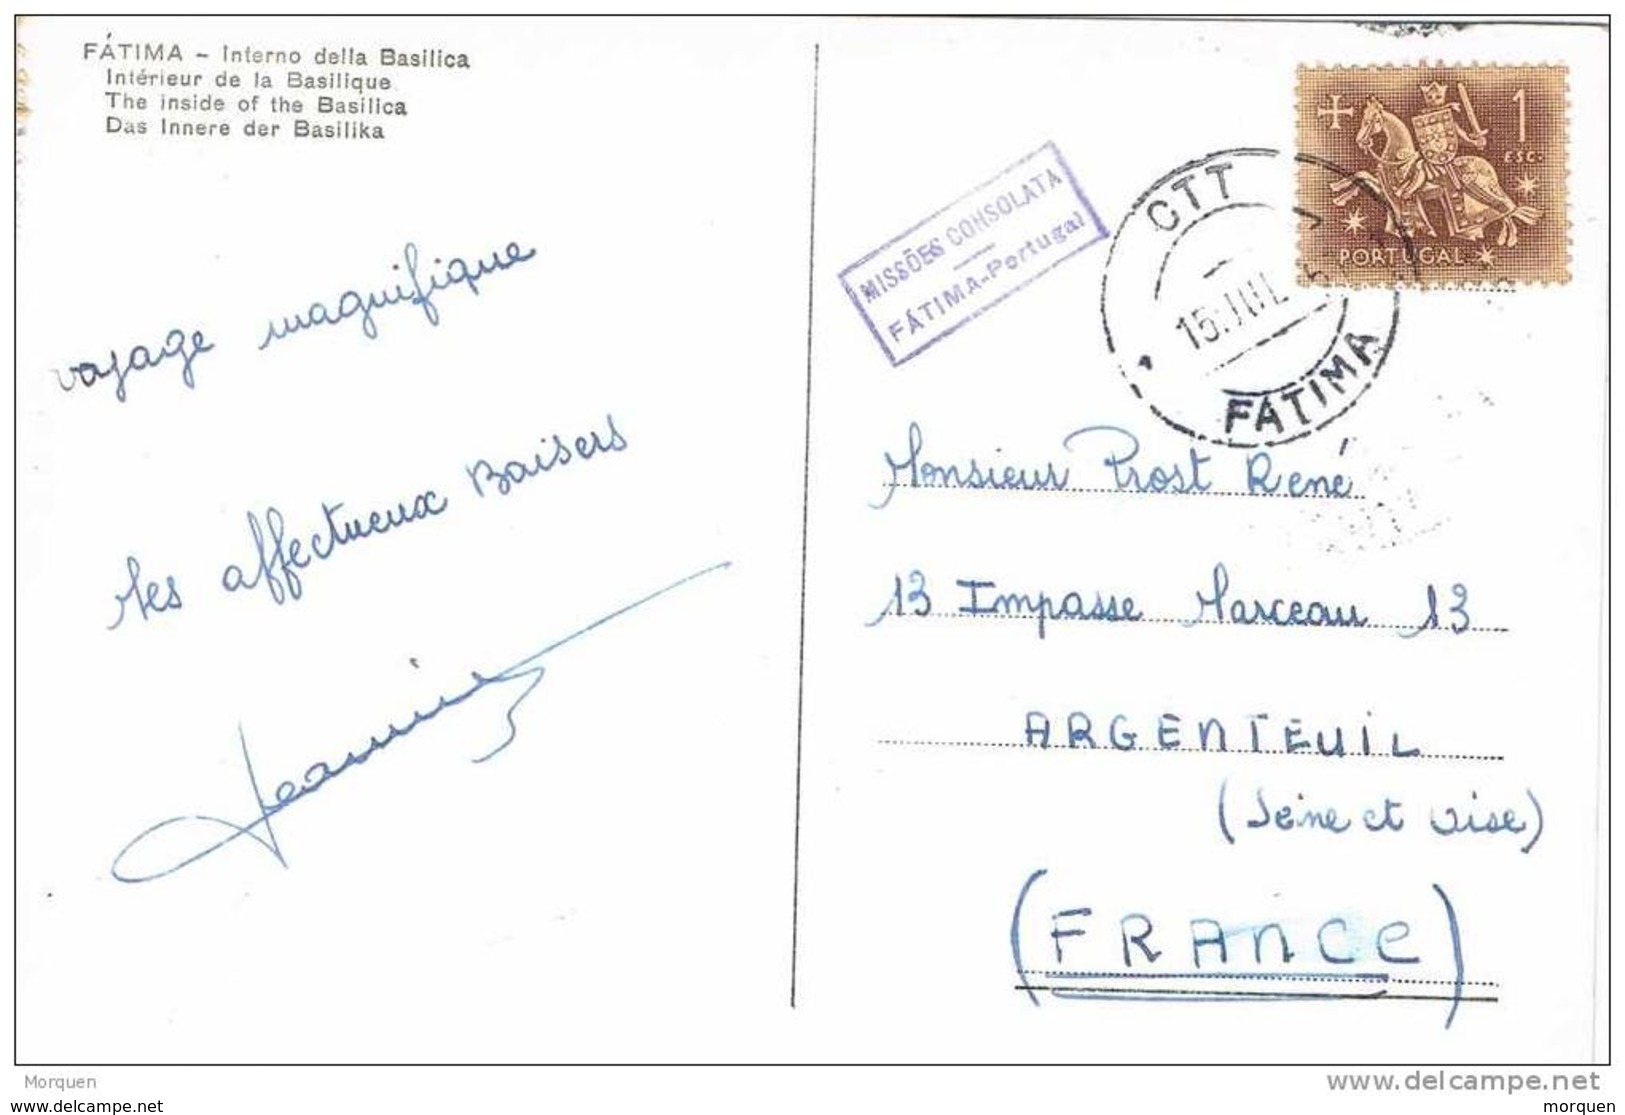 FÁTIMA – Interno della Basilica
Intérieur de la Basilique
The inside of the Basilica
Das Innere der Basilika
voyage magnifique
Mes affectueux Baisers
Jeannine
MISSÕES CONSOLATA
FÁTIMA-Portugal
CTT
15.JUL
FÁTIMA
1
ESC.
PORTUGAL
Monsieur Prost René
13 Impasse Marceau 13
ARGENTEUIL
(Seine et oise)
(FRANCE)
Morquen
www.delcampe.net
www.delcampe.net
morquen